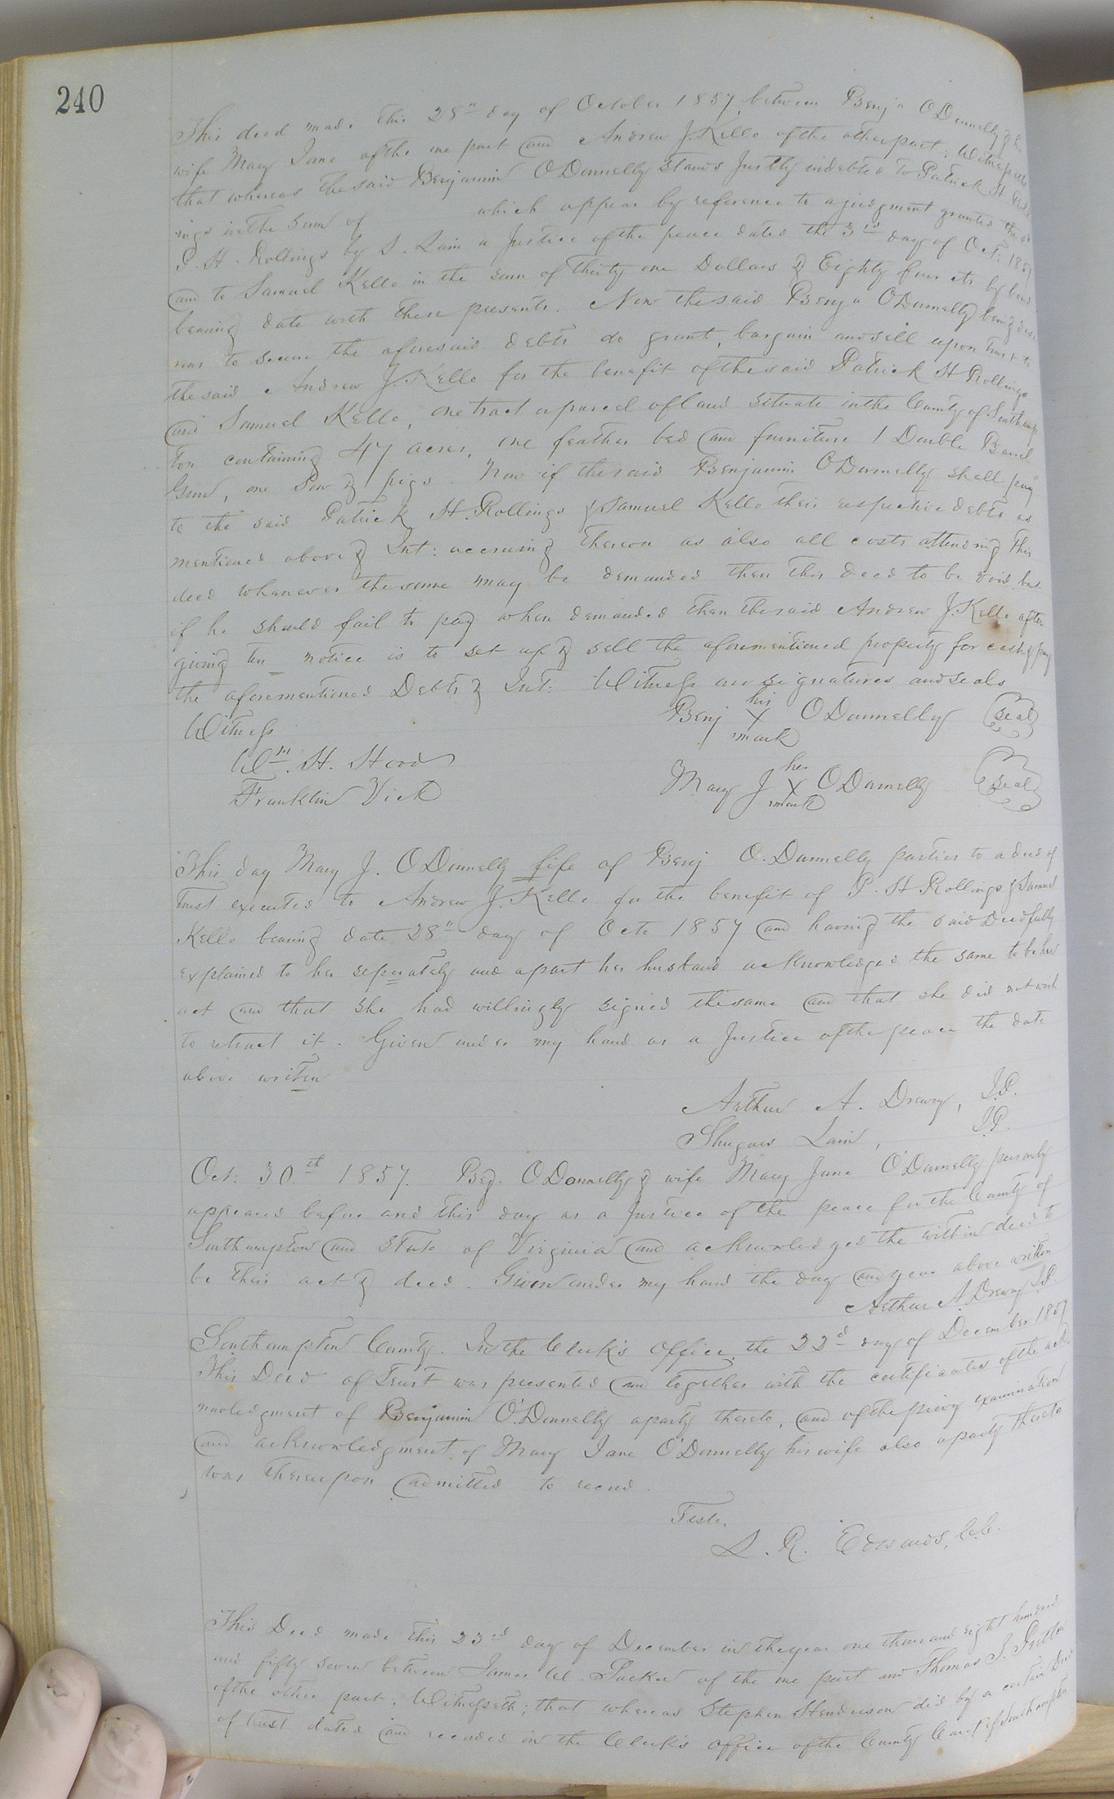 240
This deed made this 28th day of October 1857 between Benj a ODonnelly &
wife Mary Jane of the one part and Andrew J. Kello of the other part: Witnesseth
that whereas the said Benjamin ODonnelly stands Justly indebted to Patrick H. Roll
ings in the sum of which appear by reference to a judgment granted the
P. H. Rollings by S. Lain a Justice of the peace dated the 3rd day of Oct: 1857
and to Samuel Kello in the sum of thirty one Dollars & Eighty four cts by
bearing date with these presents. Now the said Benja ODonnelly being desi
rous to secure the aforesaid debts do grant, bargain and sell upon trust to
the said Andrew J. Kello for the benefit of the said Patrick H Rollings
and Samuel Kello, one tract a parcel of land situate in the County of Southamp
ton containing 47 acres, one feather bed and furniture 1 Double Barrel
Gun, one Sow & pigs. Now if the said Benjamin ODonnelly shall pay
to the said Patrick H. Rollings & Samuel Kello their respective debts as
mentioned above & Int: accruing thereon as also all costs attending this
deed whenever the same may be demanded then this deed to be void but
if he should fail to pay when demanded then the said Andrew J. Kello after
giving ten notice is to set up & sell the aforementioned property for cash & pay
the aforementioned Debts & Int: Witness our signatures and seals
Witness
Benj his X mark ODonnelly (seal)
Wm. H. Hood
Franklin Vick
Mary J her X mark ODonnelly (seal)
This day Mary J. ODonnelly fife of Benj O.Donnelly parties to a deed of
Trust executed to Andrew J. Kello for the benefit of P. H Rollings & Samuel
Kello bearing date 28th day of Octo 1857 and having the said Deed fully
explained to her seperately and apart her husband acknowledged the same to be her
act and that she had willingly signed the same and that she did not wish
to retract it. Given under my hand as a Justice of the peace the date
above writen
Arthur A. Drewry, J.P.
Shugars Lain, J.P.
Oct: 30th 1857. Benj. ODonnelly & wife Mary Jane O'Donnelly personly
appeared before and this day as a Justice of the peace for the County of
Southampton and State of Virginia and acknowledged the within deed to
be their act & deed. Given under my hand the day and year above written
Arthur A. Drewry J.P.
Southampton County. In the Clerk's Office the 22d day of December 1857
This Deed of Trust was presented and together with the certificates of the ack
nowledgment of Benjamin O'Donnelly a party thereto, and of the privy examination
and acknowledgment of Mary Jane O'Donnelly his wife also a party thereto
was thereupon admitted to record.
Teste.
L. R. Edwards, C.C.
This Deed made this 23rd day of December in the year one thousand eight hundred
and fifty seven between James W. Parker of the one part and Thomas J. Pretlow
of the other part: Witnesseth; that whereas Stephen Henderson did by a certain Deed
of trust dated and recorded in the Clerk's office of the County Court of Southampton